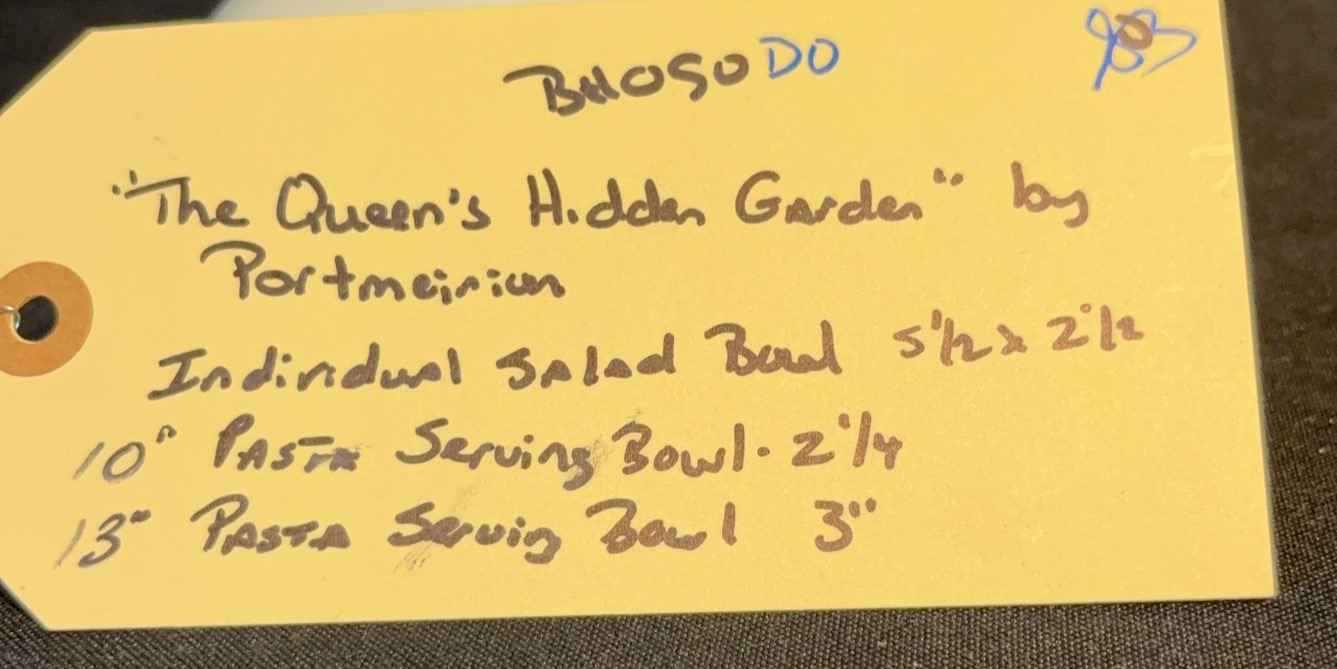 BH050 DO
"The Queen's Hidden Garden" by
Portmeirion
Individual Salad Bowl 5 1/2 x 2 1/2
10" PASTA Serving Bowl - 2 1/4
13" PASTA Servig Bowl 3"